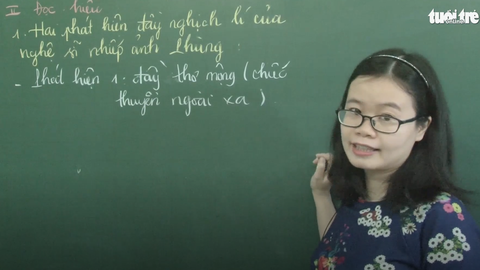 II Đọc hiểu
1. Hai phát hiện đầy nghịch lí của
nghệ sĩ nhiếp ảnh Phùng:
- Phát hiện 1: đầy thơ mộng (chiếc
thuyền ngoài xa)
tuổi trẻ